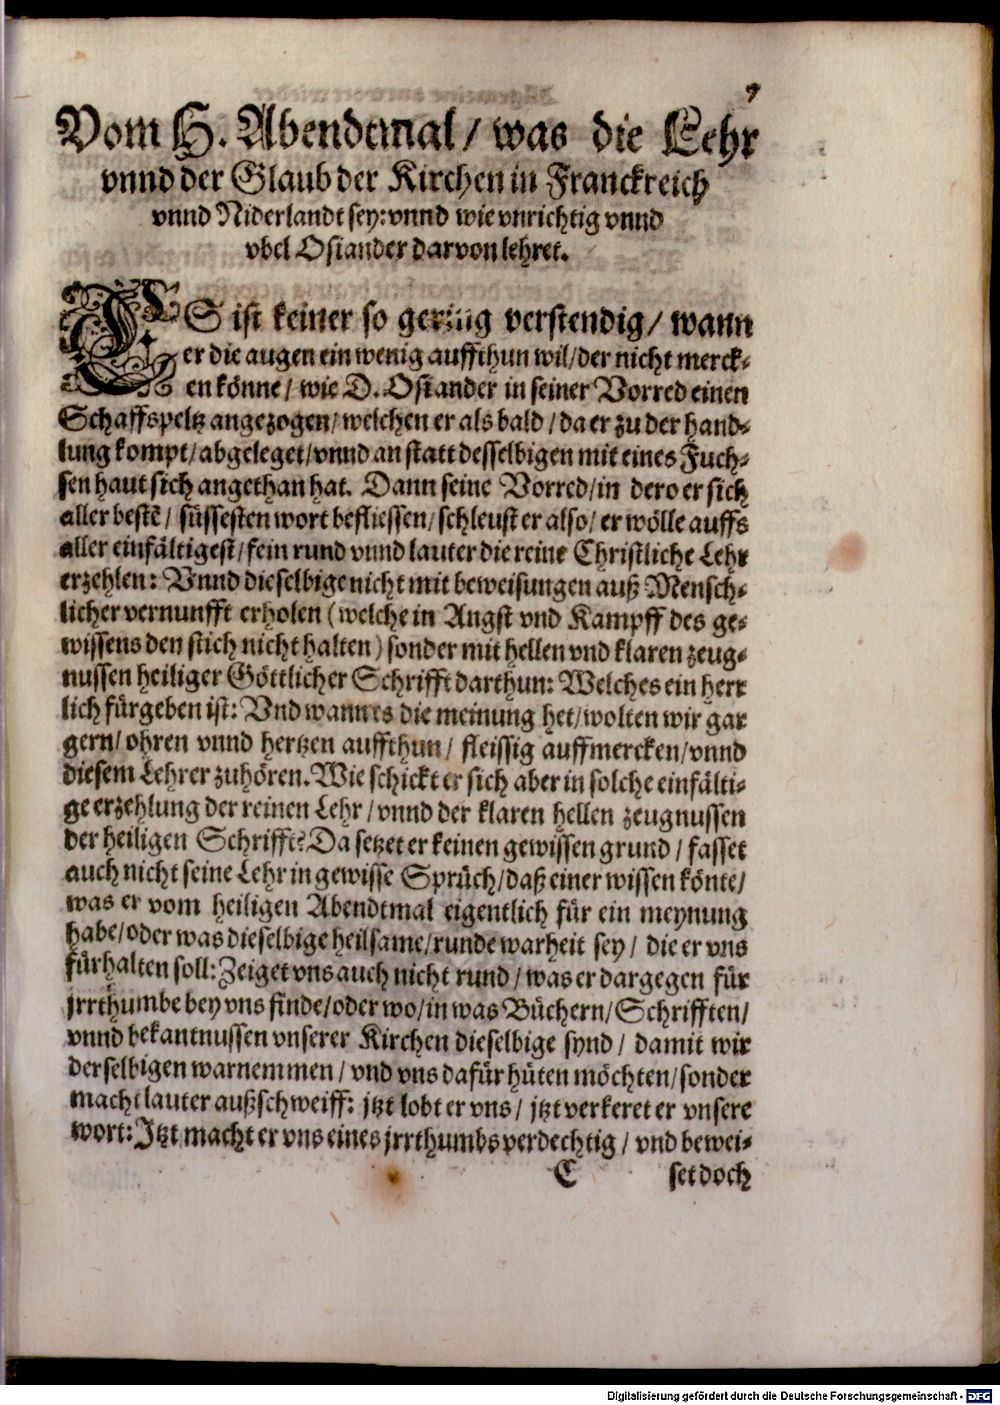 9
Vom H. Abendtmal / was die Lehr
vnnd der Glaub der Kirchen in Franckreich
vnnd Niderlandt sey: vnnd wie vnrichtig vnnd
vbel Osiander darvon lehret.
ES ist keiner so gering verstendig / wann
er die augen ein wenig auffthun wil / der nicht merck⸗
en könne / wie D. Osiander in seiner Vorred einen
Schaffspeltz angezogen / welchen er als bald / da er zu der hand⸗
lung kompt / abgeleget / vnnd an statt desselbigen mit eines Fuch⸗
sen haut sich angethan hat. Dann seine Vorred / in dero er sich
aller bestẽ / süssesten wort befliessen / schleust er also / er wölle auffs
aller einfältigest / fein rund vnnd lauter die reine Christliche Lehr
erzehlen: Vnnd dieselbige nicht mit beweisungen auß Mensch⸗
licher vernunfft erholen (welche in Angst vnd Kampff des ge⸗
wissens den stich nicht halten) sonder mit hellen vnd klaren zeug⸗
nussen heiliger Göttlicher Schrifft darthun: Welches ein herr
lich fürgeben ist: Vnd wann es die meinung het / wolten wir gar
gern / ohren vnnd hertzen auffthun / fleissig auffmercken / vnnd
diesem Lehrer zuhören. Wie schickt er sich aber in solche einfälti⸗
ge erzehlung der reinen Lehr / vnnd der klaren hellen zeugnussen
der heiligen Schrifft? Da setzet er keinen gewissen grund / fasset
auch nicht seine Lehr in gewisse Sprüch / daß einer wissen könte /
was er vom heiligen Abendtmal eigentlich für ein meynung
habe / oder was dieselbige heilsame / runde warheit sey / die er vns
fürhalten soll: Zeiget vns auch nicht rund / was er dargegen für
jrrthumbe bey vns finde / oder wo / in was Büchern / Schrifften /
vnnd bekantnussen vnserer Kirchen dieselbige synd / damit wir
derselbigen warnemmen / vnd vns dafür hüten möchten / sonder
macht lauter außschweiff: jtzt lobt er vns / jtzt verkeret er vnsere
wort: Jtzt macht er vns eines jrrthumbs verdechtig / vnd bewei⸗
C set doch
Digitalisierung gefördert durch die Deutsche Forschungsgemeinschaft - DFG